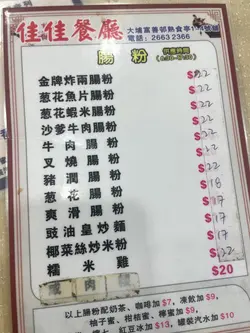 佳佳餐廳
大埔富善邨熟食亭
電話：2663 2366
腸粉
供應時間
金牌炸兩腸粉 $22
葱花魚片腸粉 $22
葱花蝦米腸粉 $22
沙爹牛肉腸粉 $22
牛肉腸粉 $22
叉燒腸粉 $22
豬潤腸粉 $22
葱花腸粉 $18
爽滑腸粉 $17
豉油皇炒麵 $17
椰菜絲炒米粉 $17
糯米雞 $22
$20
以上腸粉配奶茶、咖啡加$7，凍飲加$9，
柚子蜜、柑桔蜜、檸蜜加$9，
紅豆冰加$13，罐裝汽水加$10